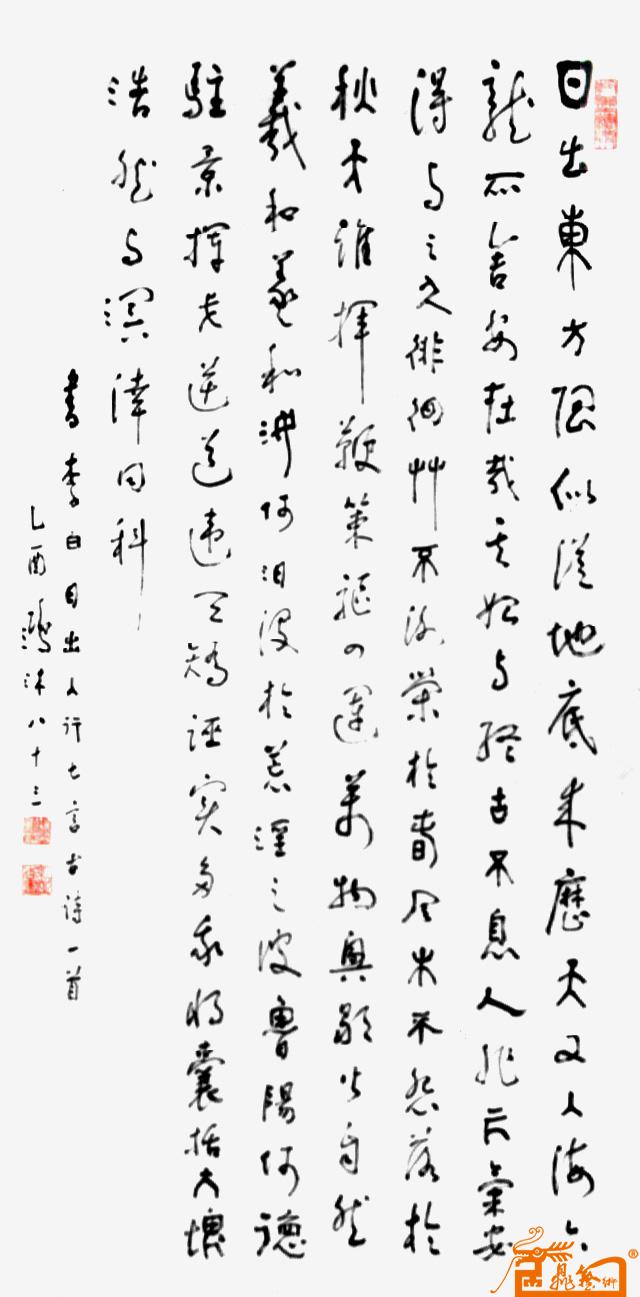 日出東方隈似從地底來歷天又入海六
龍所舍安在哉其始与終古不息人非元氣安
得与之久徘徊艸不謝榮於春風木不怨落於
秋天誰揮鞭策驅四運萬物興歇皆自然
羲和羲和汝何汩沒於荒淫之波魯陽何德
駐景揮戈逆道違天矯誣實多我將囊括大塊
浩然与溟涬同科
書李白日出入行七言古詩一首
乙酉鴻八十三